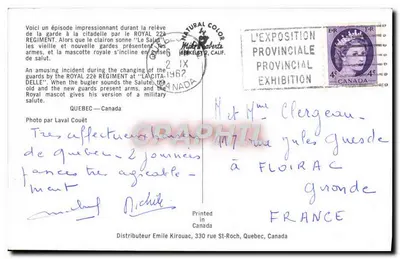 Voici un épisode impressionnant durant la relève
de la garde à la citadelle par le ROYAL 22è
RÉGIMENT. Alors que le clairon sonne "Le Salut"
les vieille et nouvelle gardes présentent les
armes, et la mascotte royale s'incline en guise
de salut.
An amusing incident during the changing of the
guards by the ROYAL 22è REGIMENT at "LA CITA-
DELLE". When the bugler sounds the Salute, the
old and the new guards present arms, and the
Royal mascot gives his version of a military
salute.
QUEBEC—Canada
Photo par Laval Couët
NATURAL COLOR
Mike Roberts
BERKELEY 2, CALIF.
PM
2 IX
1962
CANADA
L'EXPOSITION
PROVINCIALE
PROVINCIAL
EXHIBITION
CANADA
4¢ 4¢
Tres affectueux
de Quebec. 2 journees
passees tres agreable-
ment
Michèle
M et Mme Clergeau
117 rue Jules Guesde
à FLOIRAC
Gironde
FRANCE
Printed
in
Canada
Distributeur Emile Kirouac, 330 rue St-Roch, Quebec, Canada